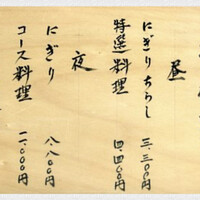 昼
にぎり ちらし 三、三〇〇円
特選料理 四、四〇〇円
夜
にぎり 八、八〇〇円
コース料理 一一、〇〇〇円